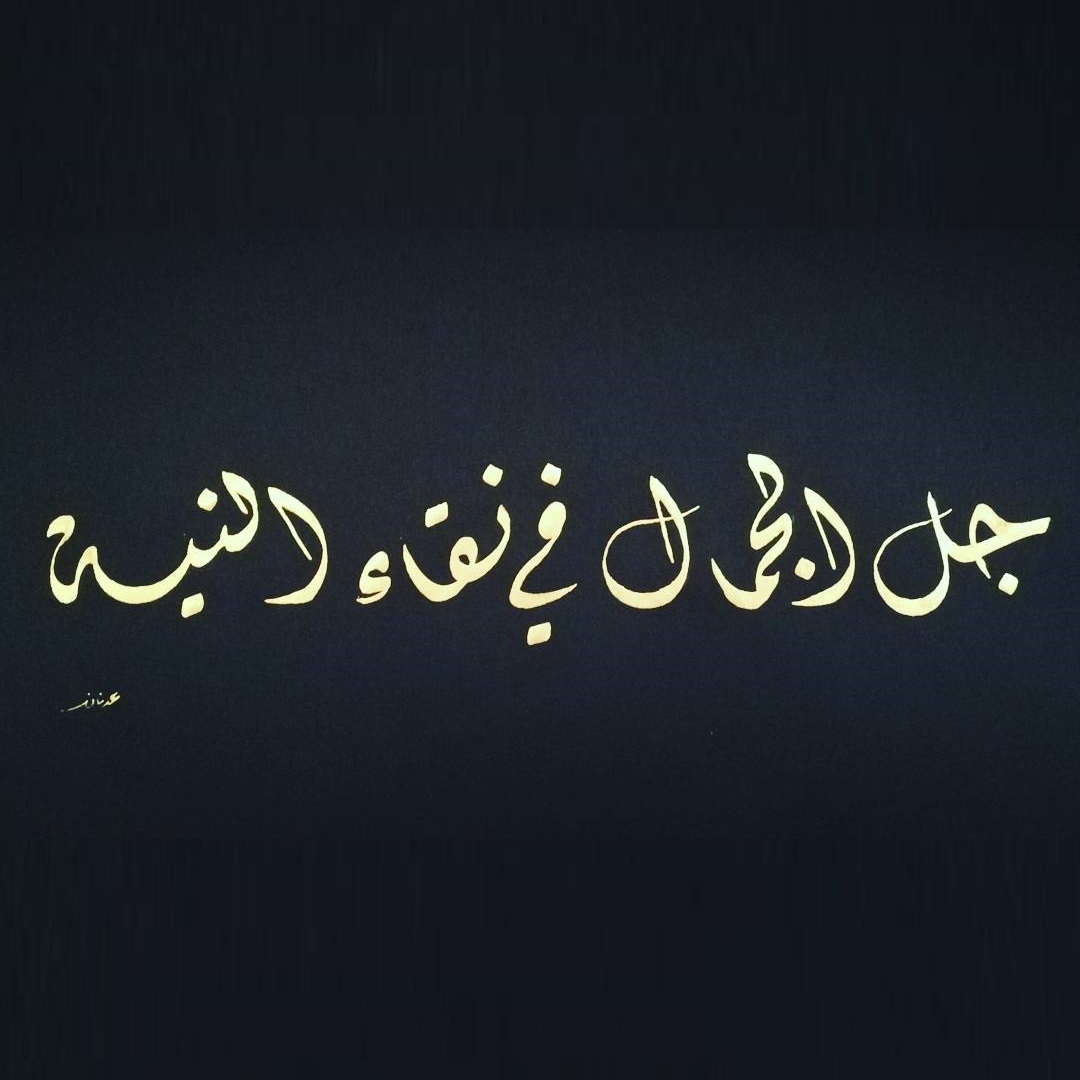 جل الجمال في نقاء النية
عدنان